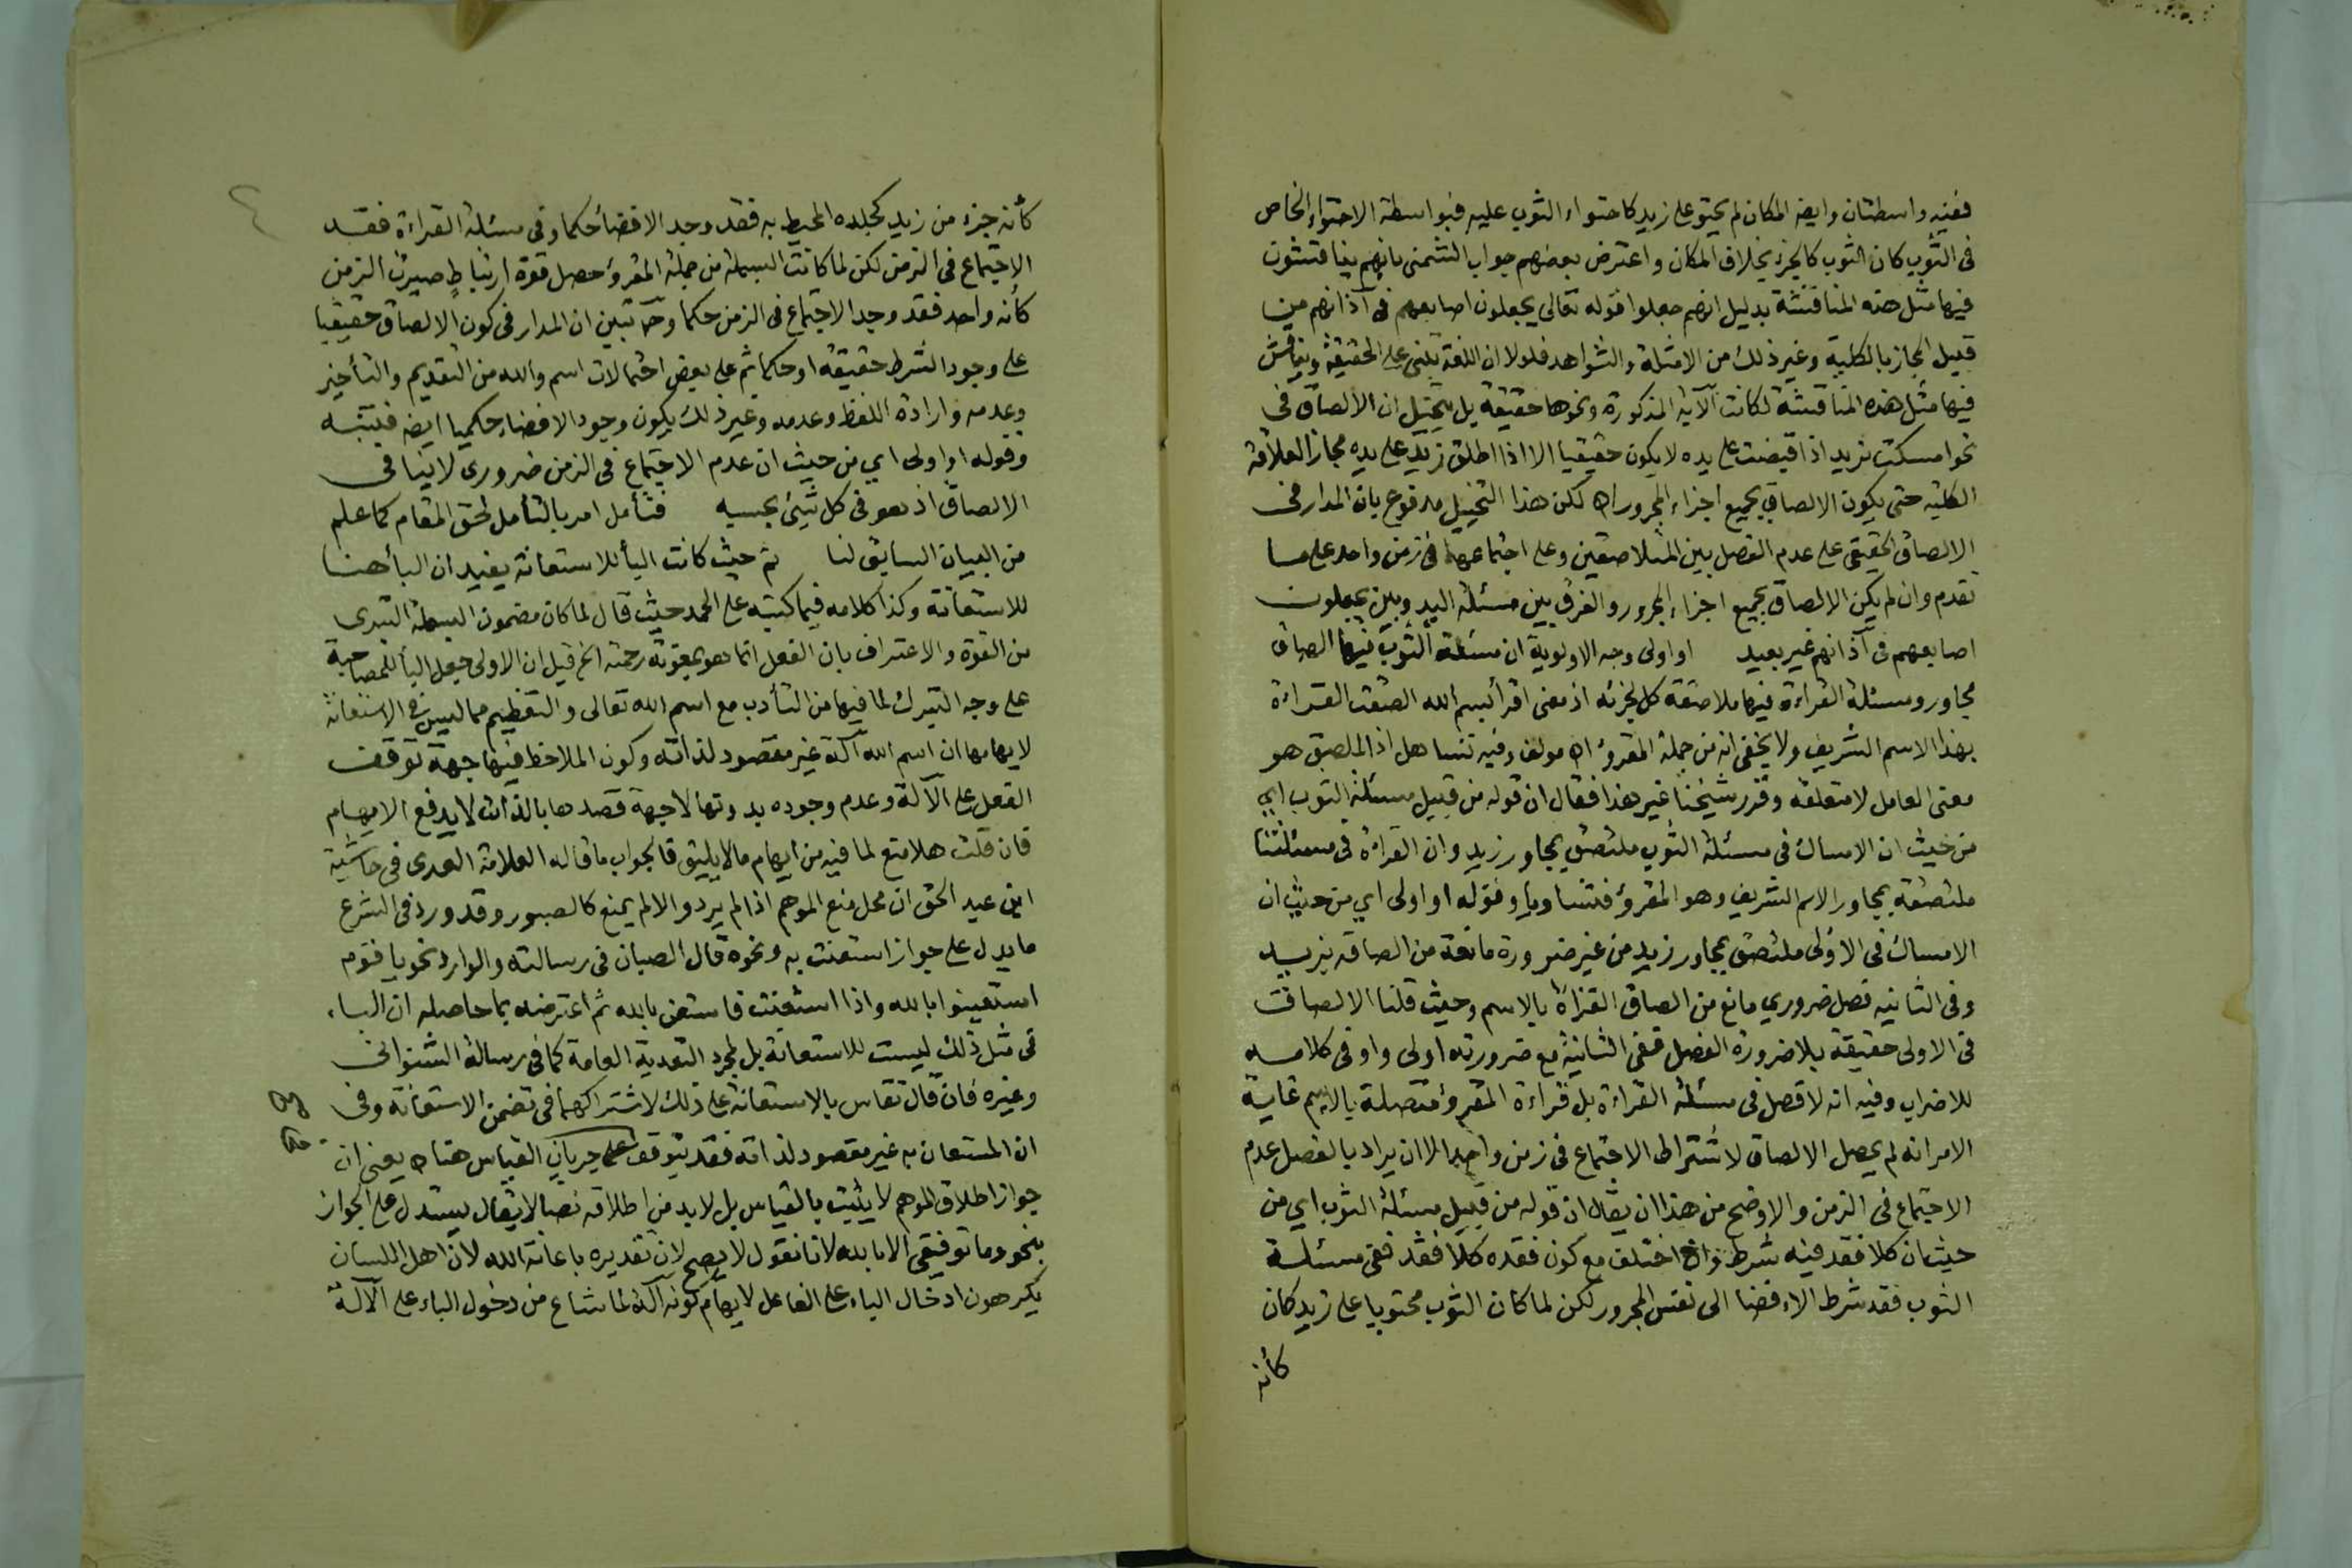 ففيه واسطتان وايضا المكان لم يحتو على زيد كاحتواء الثوب عليه فبواسطة الاحتواء الخاص
فى الثوب كان الثوب كالجزء بخلاف المكان واعترض بعضهم جواب الشمنى بانهم يناقشون
فيها مثل هذه المناقشة بدليل انهم جعلوا قوله تعالى يجعلون اصابعهم فى آذانهم من
قبيل المجاز بالكلية وغير ذلك من الامثلة والشواهد فلولا ان اللغة تبنى على الحقيقة ويناقش
فيها مثل هذه المناقشة لكانت الآية المذكورة ونحوها حقيقة بل يتخيل ان الالصاق فى
نحو امسكت بزيد اذا قبضت على يده لا يكون حقيقيا الا اذا اطلق زيد على يده مجازا لعلاقة
الكلية حتى يكون الالصاق بجميع اجزاء المجرور اه لكن هذا التخييل مدفوع بان المدار فى
الالصاق الحقيقى على عدم الفصل بين المتلاصقين وعلى اجتماعهما فى زمن واحد على ما
تقدم وان لم يكن الالصاق بجميع اجزاء المجرور والفرق بين مسئلة اليد وبين يجعلون
اصابعهم فى آذانهم غير بعيد او اولى وجه الاولوية ان مسئلة الثوب فيها الصاق
مجاور ومسئلة القراءة فيها ملاصقة كل لجزئه اذ معنى اقرأ بسم الله الصقت القراءة
بهذا الاسم الشريف ولا يخفى انه من جملة المقروء اه مولف وفيه تساهل اذ الملصق هو
معنى العامل لا متعلقه وقرر شيخنا غير هذا فقال ان قوله من قبيل مسئلة الثوب اى
من حيث ان الامساك فى مسئلة الثوب ملتصق بمجاور زيد وان القراءة فى مسئلتنا
ملتصقة بمجاور الاسم الشريف وهو المقروء فتساويا وقوله او اولى اى من حيث ان
الامساك فى الاولى ملتصق بمجاور زيد من غير ضرورة مانعة من الصاقه بزيد
وفى الثانيه فصل ضرورى مانع من الصاق القراءة بالاسم وحيث قلنا الالصاق
فى الاولى حقيقة بلا ضرورة الفصل ففى الثانية مع ضرورته اولى واو فى كلامه
للاضراب وفيه انه لا فصل فى مسئلة القراءة بل قراءة المقروء متصلة بالاسم غاية
الامر انه لم يحصل الالصاق لاشتراط الاجتماع فى زمن واحد الا ان يراد بالفصل عدم
الاجتماع فى الزمن والاوضح من هذا ان يقال ان قوله من قبيل مسئلة الثوب اى من
حيث ان كلا فقد فيه شرط وان اختلف مع كون فقده كلا فقد ففى مسئلة
الثوب فقد شرط الافضا الى نفس المجرور لكن لما كان الثوب محتويا على زيد كان
كأنه
كأنه جزء من زيد كجلده المحيط به فقد وجد الافضا حكما وفى مسئلة القراءة فقد
الاجتماع فى الزمن لكن لما كانت البسملة من جملة المقروء حصل قوة ارتباط صيرت الزمن
كأنه واحد فقد وجد الاجتماع فى الزمن حكما وح تبين ان المدار فى كون الالصاق حقيقيا
على وجود الشرط حقيقة او حكما ثم على بعض احتمالات اسم والله من التقديم والتأخير
وعدمه وارادة اللفظ وعدمه وغير ذلك يكون وجود الافضاء حكميا ايضا فتنبه
وقوله او اولى اى من حيث ان عدم الاجتماع فى الزمن ضرورى لا ينافى
الالصاق اذ هو فى كل شيئ بحسبه فتأمل امر بالتأمل لحق المقام كما علم
من البيان السابق لنا ثم حيث كانت البأ للاستعانة يفيد ان البأ هنا
للاستعانة وكذا كلامه فيما كتبه على الحمد حيث قال لما كان مضمون البسملة التبرى
من القوة والاعتراف بان الفعل انما هو بمعونة رحمته الخ قيل ان الاولى جعل البأ للمصاحبة
على وجه التبرك لما فيها من التأدب مع اسم الله تعالى والتعظيم مما ليس فى الاستعانة
لايهامها ان اسم الله آلة غير مقصود لذاته وكون الملاحظ فيها جهة توقف
الفعل على الآلة وعدم وجوده بدونها لا جهة قصدها بالذات لا يدفع الايهام
فان قلت هلا منع لما فيه من ايهام ما لا يليق فالجواب ما قاله العلامة العدوى فى حاشية
ابن عبد الحق ان محل منع الموهم اذا لم يرد والا لم يمنع كالصبور وقد ورد فى الشرع
ما يدل على جواز استعنت به ونحوه قال الصبان فى رسالته والوارد نحو يا قوم
استعينوا بالله واذا استعنت فاستعن بالله ثم اعترضه بما حاصله ان الباء
فى مثل ذلك ليست للاستعانة بل لمجرد التعدية العامة كما فى رسالة الشنوانى
وغيره فان قال تقاس بالاستعانة على ذلك لاشتراكهما فى تضمن الاستعانة وفى
ان المستعان به غير مقصود لذاته فقد يتوقف على جريان القياس هنا اه يعنى ان
جواز اطلاق الموهم لا يثبت بالقياس بل لا بد من اطلاقه نصا لا يقال يستدل على الجواز
بنحو وما توفيقى الا بالله لانا نقول لا يصح لان تقديره باعانة الله لان اهل اللسان
يكرهون ادخال الباء على الفاعل لايهام كونه آلة لما شاع من دخول الباء على الآلة